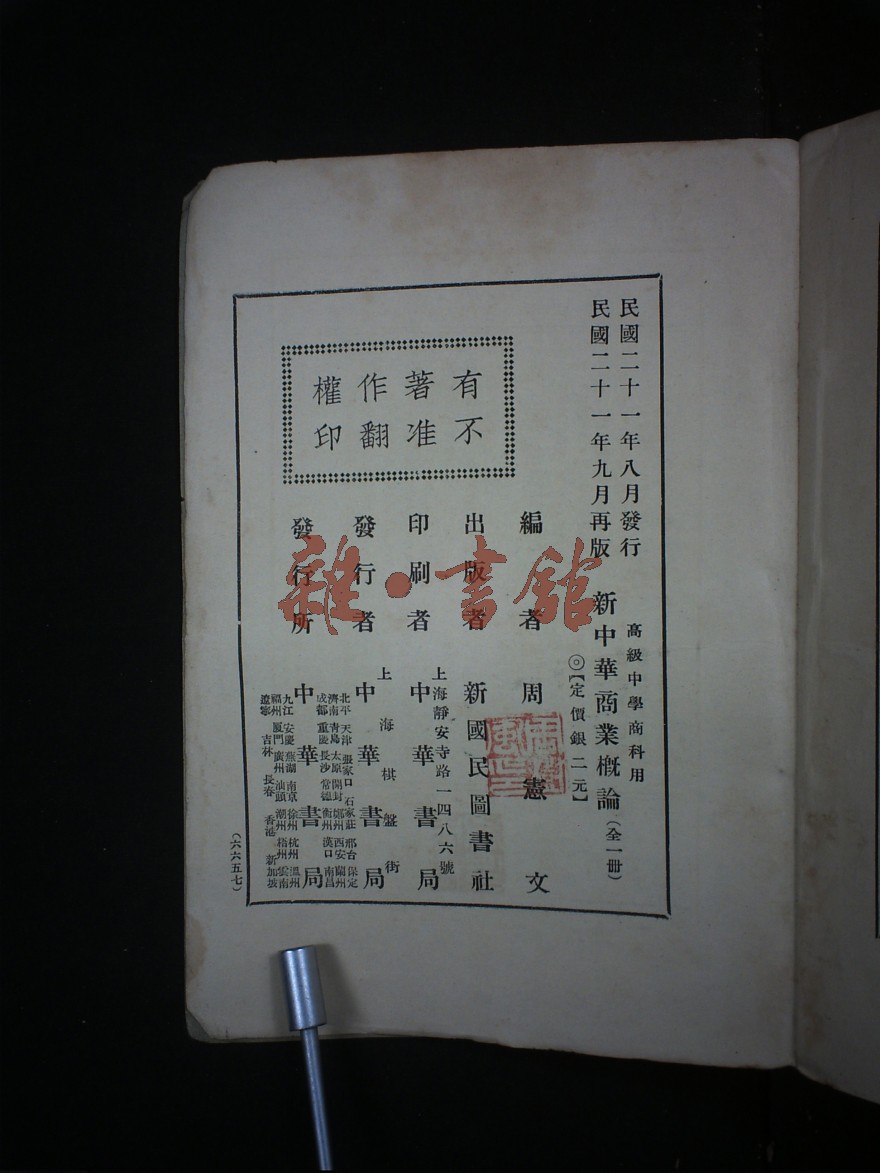 民國二十一年八月發行
民國二十一年九月再版
高級中學商科用
新中華商業概論（全一册）
◎【定價銀二元】
編者 周憲文
出版者 新國民圖書社
印刷者 上海靜安寺路一四八六號 中華書局
發行者 上海棋盤街 中華書局
發行所 中華書局
北平 天津 張家口 石家莊 邢台 保定
濟南 青島 太原 開封 鄭州 西安 蘭州
成都 重慶 長沙 常德 衡州 漢口 南昌
九江 安慶 蕪湖 南京 徐州 杭州 溫州
福州 厦門 廣州 汕頭 潮州 梧州 雲南
遼寧 吉林 長春 香港 新加坡
有著作權
不准翻印
（六六五七）
雜·書館